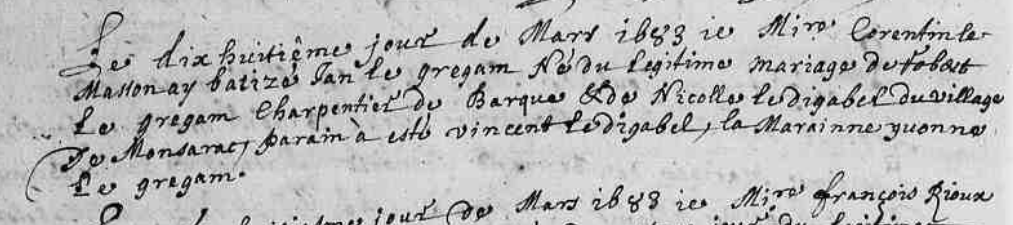 Le dix huitiême jour de Mars 1683 ie Mire Corentin le
Masson ay batize Jan le gregam Né du legitime mariage de Robert
Le gregam Charpentier de Barque & de Nicolle le digabel du village
De Monsarac, parain à esté vincent Le digabel, la Marainne yvonne
Le gregam.
huitiême jour de Mars 1683 ie Mire françois Rioux